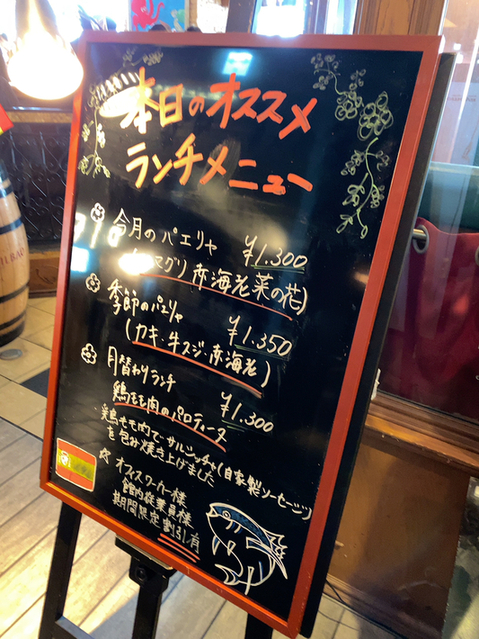 本日のオススメ
ランチメニュー
今月のパエリャ ¥1.300
マグリ 赤海老 菜の花)
季節のパエリャ ¥1.350
(カキ・牛スジ・赤海老)
月替わりランチ ¥1.300
鶏もも肉のバロティーヌ
鶏もも肉でサルシッチャ(自家製ソーセージ)
を包み焼き上げました
オフィスワーカー様
館内従業員様
期間限定割引有